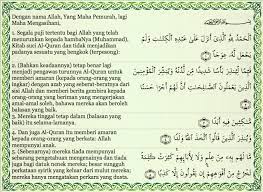 Dengan nama Allah, Yang Maha Pemurah, lagi
Maha Mengasihani,
1. Segala puji tertentu bagi Allah yang telah
menurunkan kepada hambaNya (Muhammad),
Kitab suci Al-Quran dan tidak menjadikan
padanya sesuatu yang bengkok (terpesong):
2. (Bahkan keadaannya) tetap benar lagi
menjadi pengawas turunnya Al-Quran untuk
memberi amaran (kepada orang-orang yang
ingkar) dengan azab yang seberat-beratnya dari
sisi Allah, dan memberi berita gembira kepada
orang-orang yang beriman yang mengerjakan
amal-amal soleh, bahawa mereka akan beroleh
balasan yang baik.
3. Mereka tinggal tetap dalam (balasan yang
baik) itu selama-lamanya.
4. Dan juga Al-Quran itu memberi amaran
kepada orang-orang yang berkata: Allah
mempunyai anak.
5. (Sebenarnya) mereka tiada mempunyai
sebarang pengetahuan mengenainya dan tiada
juga bagi datuk nenek mereka; besar sungguh
perkataan syirik yang keluar dari mulut mereka;
mereka hanya mengatakan perkara yang dusta.
الْحَمْدُ لِلَّهِ الَّذِي أَنْزَلَ عَلَى عَبْدِهِ الْكِتَابَ وَلَمْ يَجْعَلْ لَهُ
عِوَجًا
قَيِّمًا لِيُنْذِرَ بَأْسًا شَدِيدًا مِنْ لَدُنْهُ وَيُبَشِّرَ الْمُؤْمِنِينَ
الَّذِينَ يَعْمَلُونَ الصَّالِحَاتِ أَنَّ لَهُمْ أَجْرًا حَسَنًا
مَاكِثِينَ فِيهِ أَبَدًا
وَيُنْذِرَ الَّذِينَ قَالُوا اتَّخَذَ اللَّهُ وَلَدًا
مَا لَهُمْ بِهِ مِنْ عِلْمٍ وَلَا لِآبَائِهِمْ كَبُرَتْ كَلِمَةً تَخْرُجُ
مِنْ أَفْوَاهِهِمْ إِنْ يَقُولُونَ إِلَّا كَذِبًا